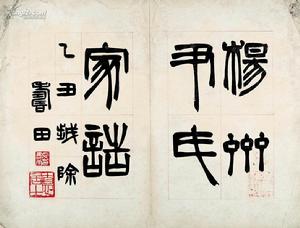 楊州
尹氏
家譜
乙丑越除
壽田